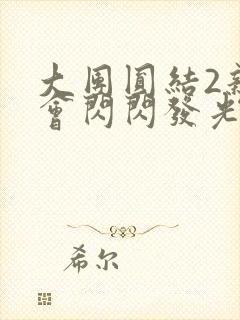 大團圓結2新
會閃閃發光
希尔